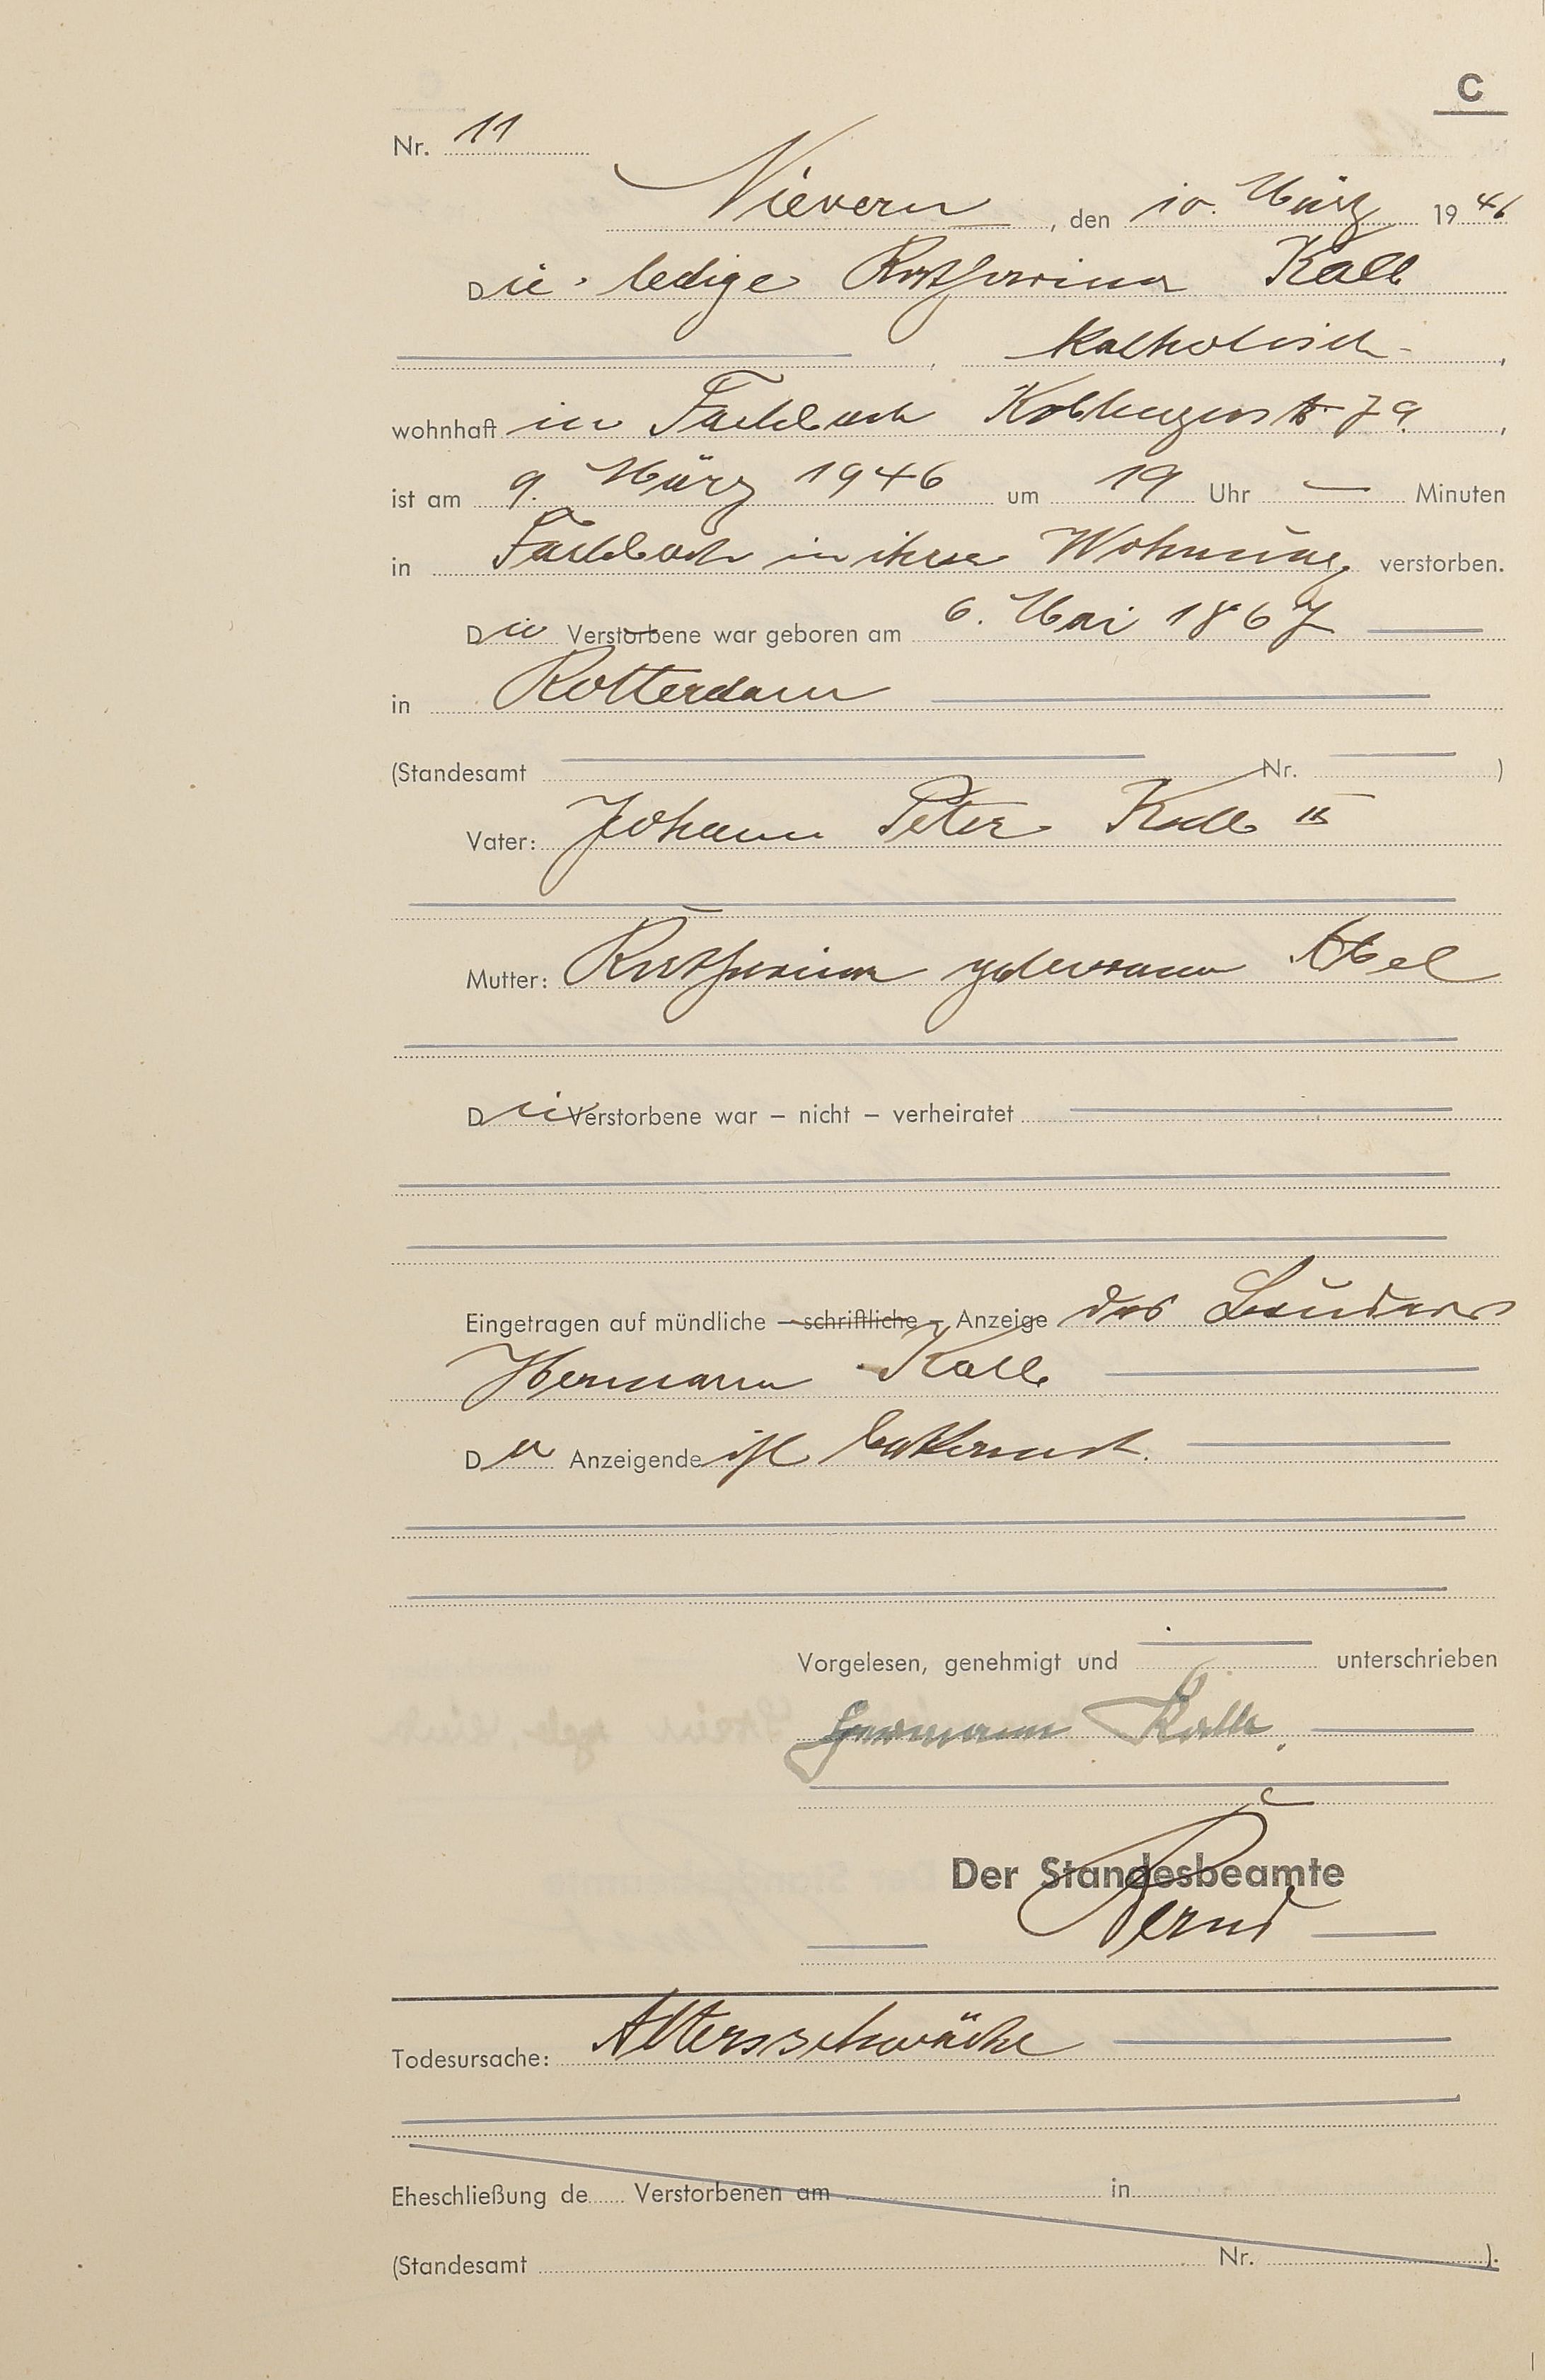 C
Nr. 11
Nievern, den 10. März 1946
Die ledige Katharina Kalb
, katholisch,
wohnhaft in Fachbach Koblenzerstr 79,
ist am 9. März 1946 um 19 Uhr — Minuten
in Fachbach in ihrer Wohnung verstorben.
Die Verstorbene war geboren am 6. Mai 1867
in Rotterdam
(Standesamt Nr. )
Vater: Johann Peter Kalb II
Mutter: Katharina geborene Abel
Die Verstorbene war – nicht – verheiratet
Eingetragen auf mündliche – schriftliche – Anzeige des Bruders
Hermann Kalb
Der Anzeigende ist bekannt.
Vorgelesen, genehmigt und unterschrieben
Hermann Kalb.
Der Standesbeamte
Todesursache: Altersschwäche
Eheschließung de Verstorbenen am in
(Standesamt Nr. ).